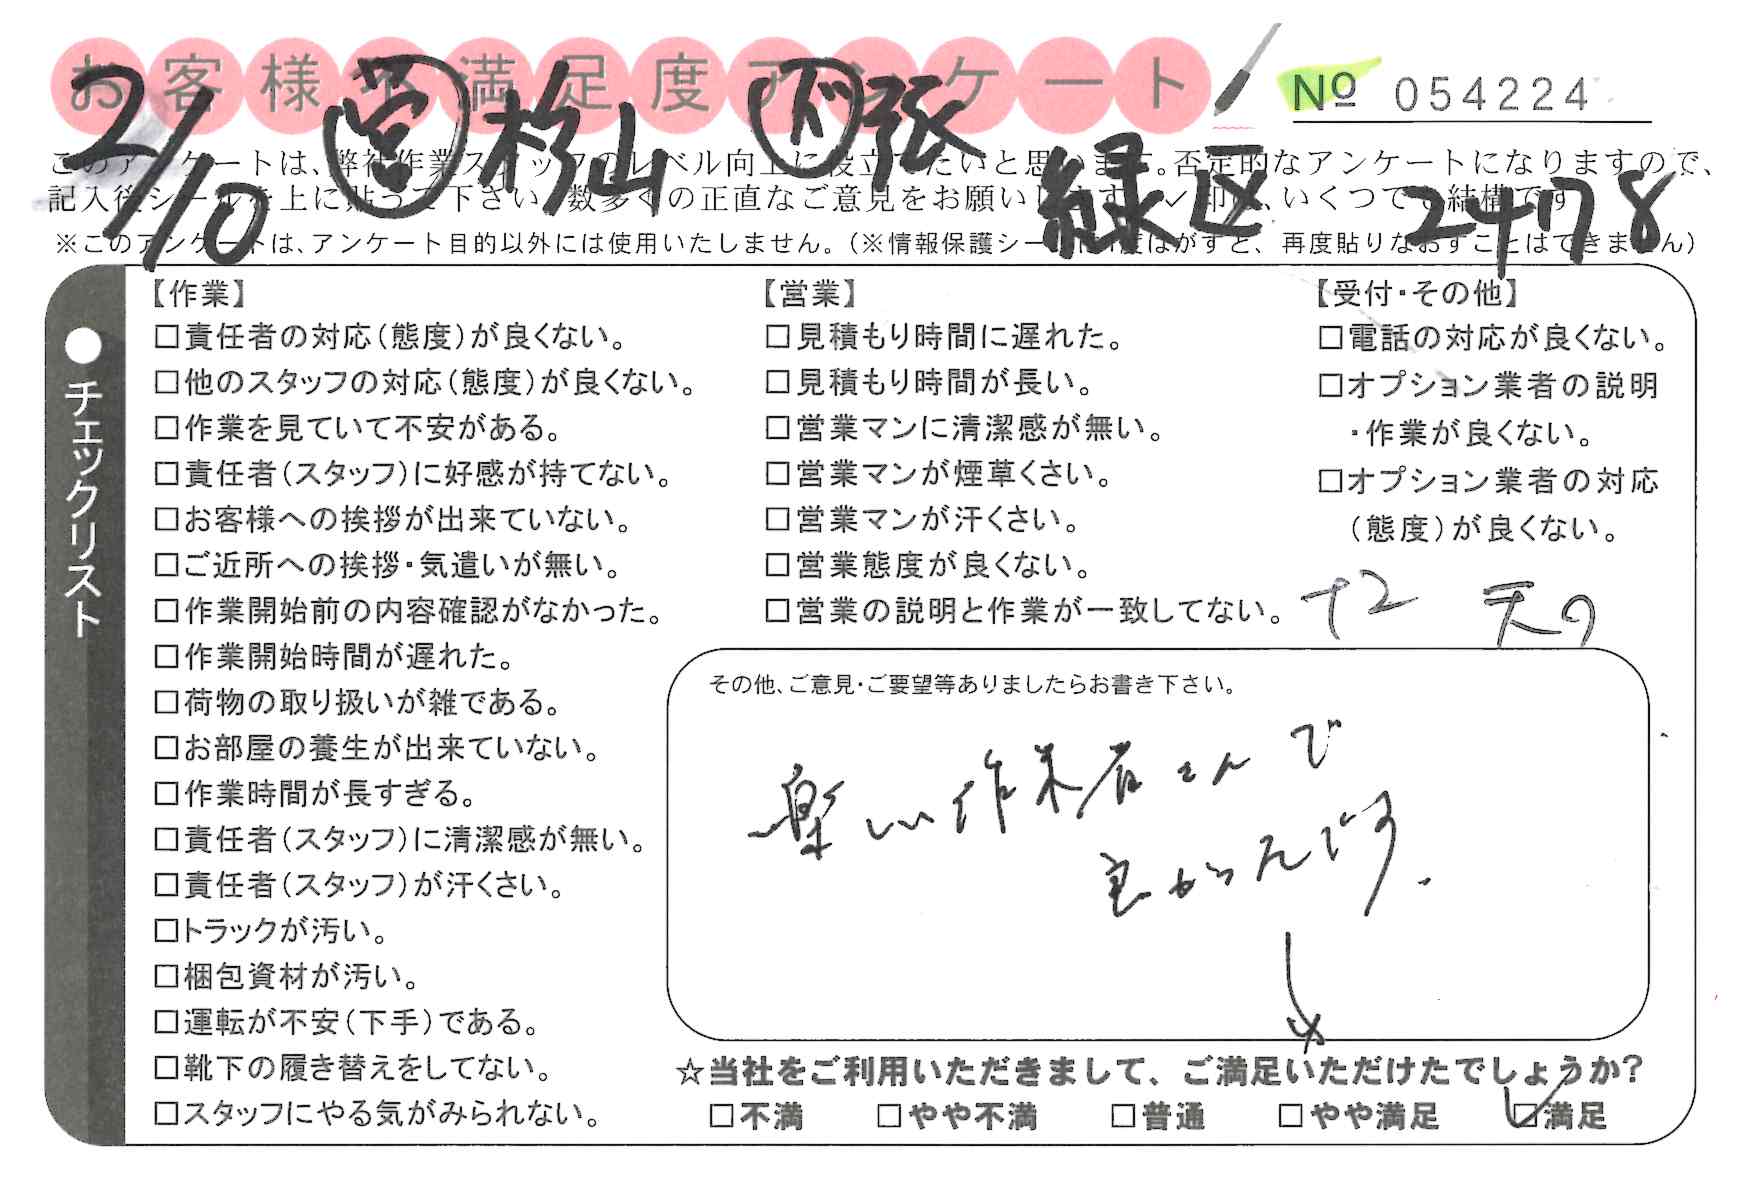 お客様不満足度アンケート
№ 054224
2/10 営 杉山 下 張 緑区 2478
このアンケートは、弊社作業スタッフのレベル向上に役立てたいと思います。否定的なアンケートになりますので、
記入後シールを上に貼って下さい。数多くの正直なご意見をお願いします。✓印は、いくつでも結構です。
※このアンケートは、アンケート目的以外には使用いたしません。(※情報保護シールは1度はがすと、再度貼りなおすことはできません)
●チェックリスト
【作業】
□責任者の対応(態度)が良くない。
□他のスタッフの対応(態度)が良くない。
□作業を見ていて不安がある。
□責任者(スタッフ)に好感が持てない。
□お客様への挨拶が出来ていない。
□ご近所への挨拶・気遣いが無い。
□作業開始前の内容確認がなかった。
□作業開始時間が遅れた。
□荷物の取り扱いが雑である。
□お部屋の養生が出来ていない。
□作業時間が長すぎる。
□責任者(スタッフ)に清潔感が無い。
□責任者(スタッフ)が汗くさい。
□トラックが汚い。
□梱包資材が汚い。
□運転が不安(下手)である。
□靴下の履き替えをしてない。
□スタッフにやる気がみられない。
【営業】
□見積もり時間に遅れた。
□見積もり時間が長い。
□営業マンに清潔感が無い。
□営業マンが煙草くさい。
□営業マンが汗くさい。
□営業態度が良くない。
□営業の説明と作業が一致してない。
【受付・その他】
□電話の対応が良くない。
□オプション業者の説明
・作業が良くない。
□オプション業者の対応
(態度)が良くない。
その他、ご意見・ご要望等ありましたらお書き下さい。
楽しい作業者さんで
良かったです。
☆当社をご利用いただきまして、ご満足いただけたでしょうか?
□不満 □やや不満 □普通 □やや満足 ☑満足